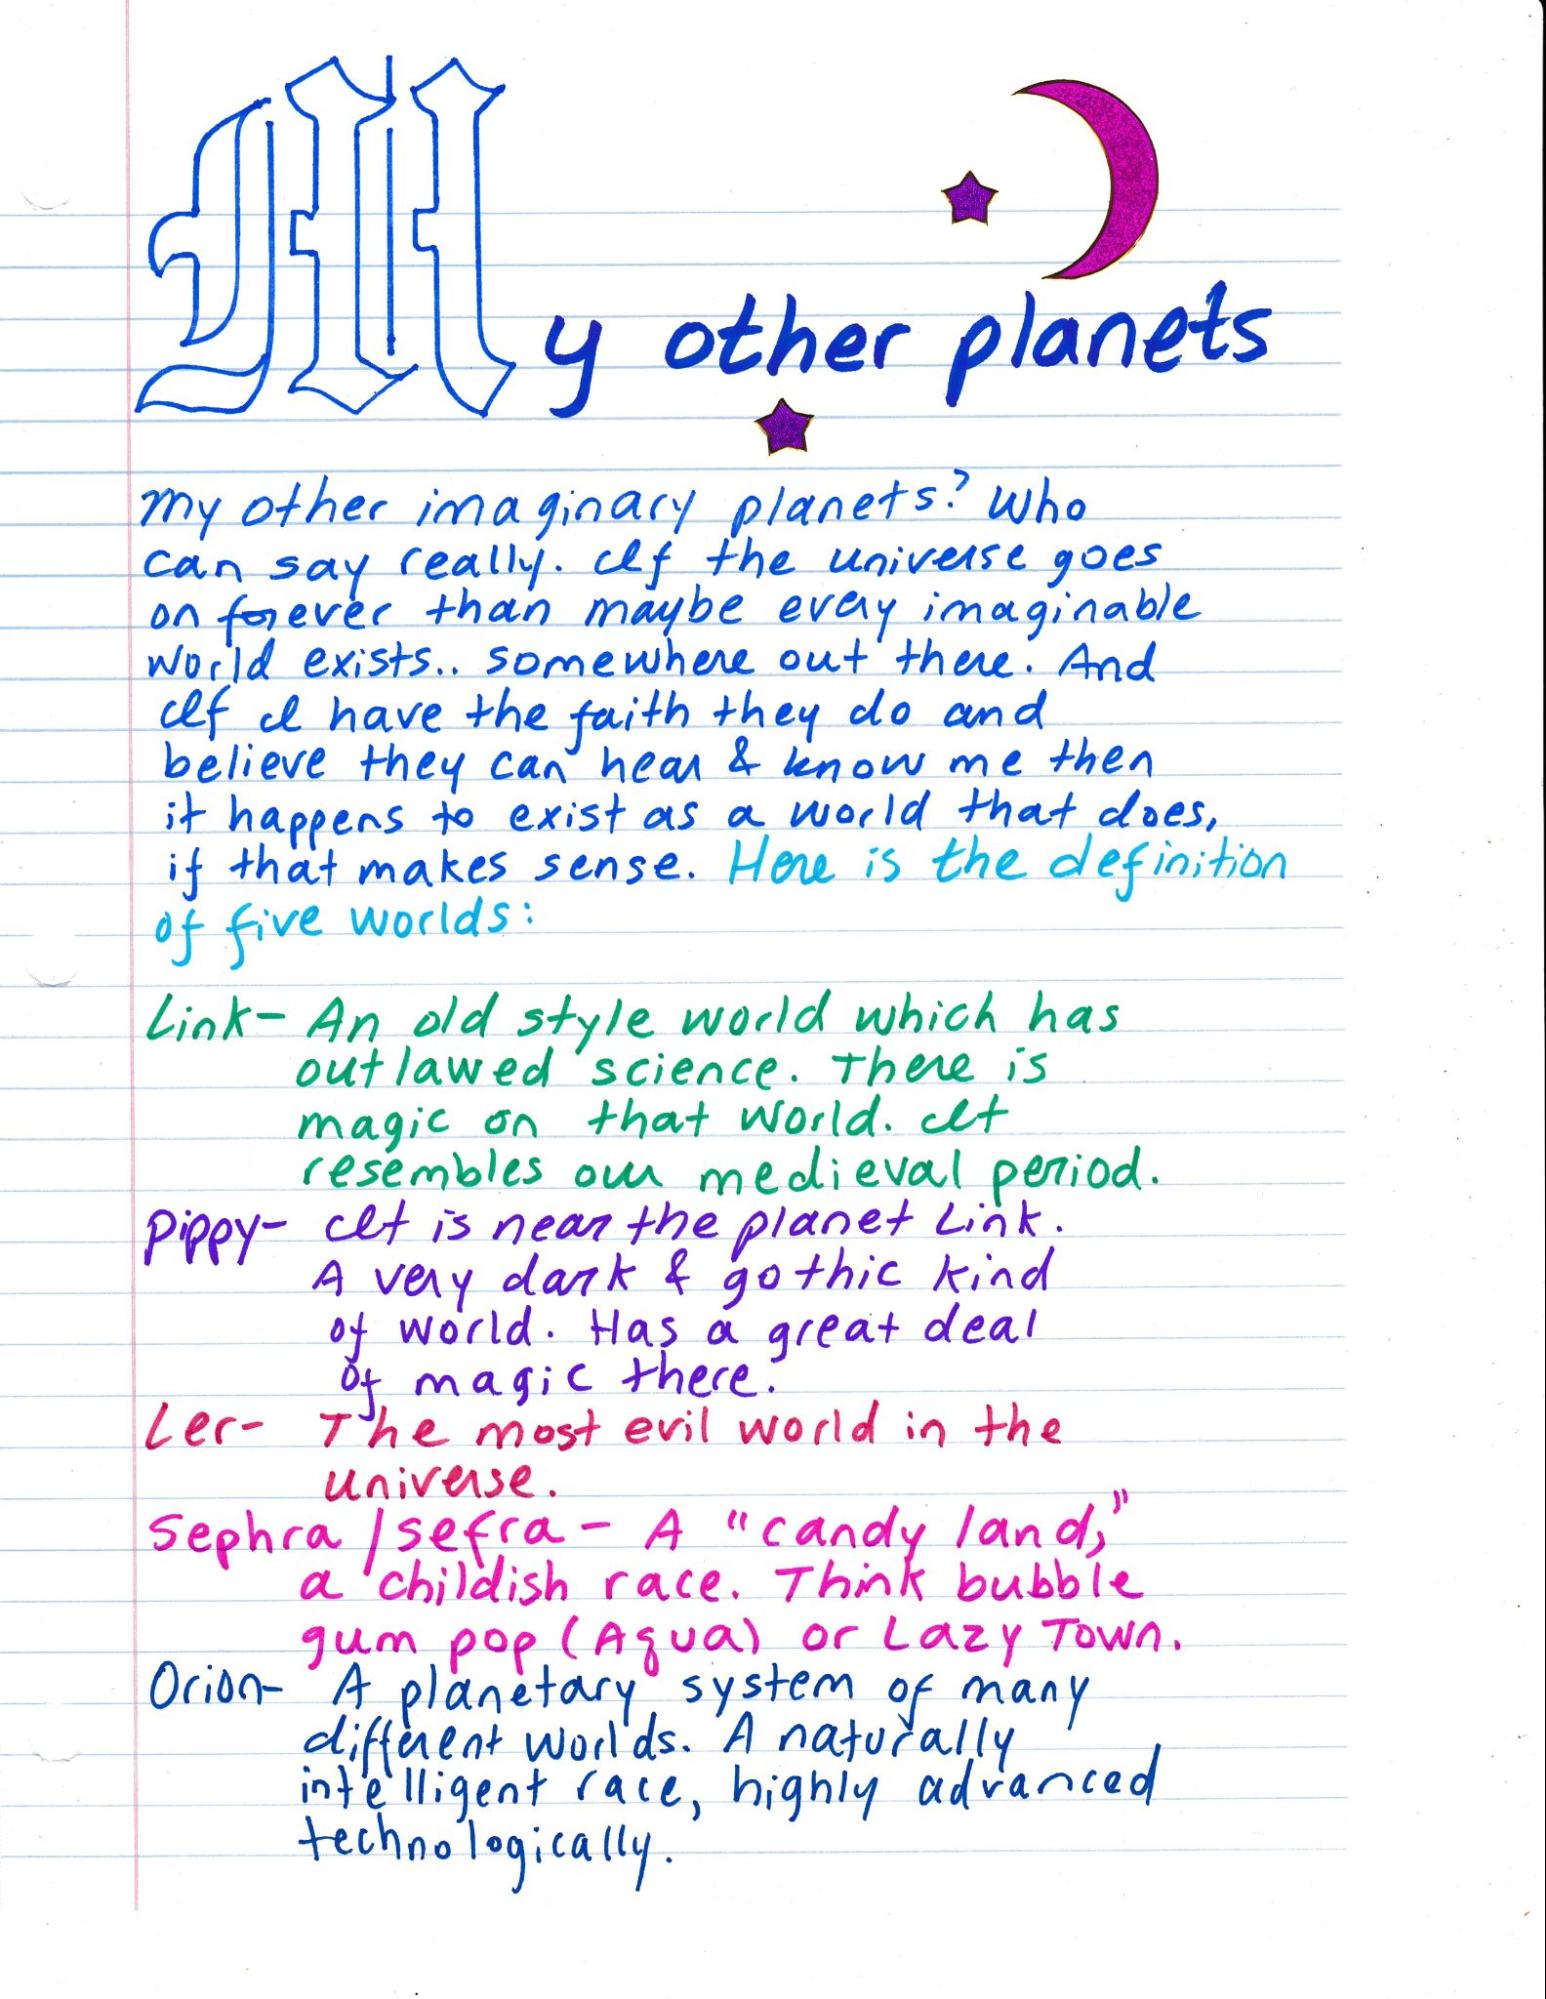 My other planets
My other imaginary planets? Who
can say really. If the universe goes
on forever than maybe every imaginable
world exists.. somewhere out there. And
If I have the faith they do and
believe they can hear & know me then
it happens to exist as a world that does,
if that makes sense. Here is the definition
of five worlds:
Link- An old style world which has
outlawed science. There is
magic on that world. It
resembles our medieval period.
Pippy- It is near the planet Link.
A very dark & gothic kind
of world. Has a great deal
of magic there.
Ler- The most evil world in the
universe.
Sephra/sefra- A "candy land,"
a childish race. Think bubble
gum pop (Aqua) or Lazy Town.
Orion- A planetary system of many
different worlds. A naturally
intelligent race, highly advanced
technologically.